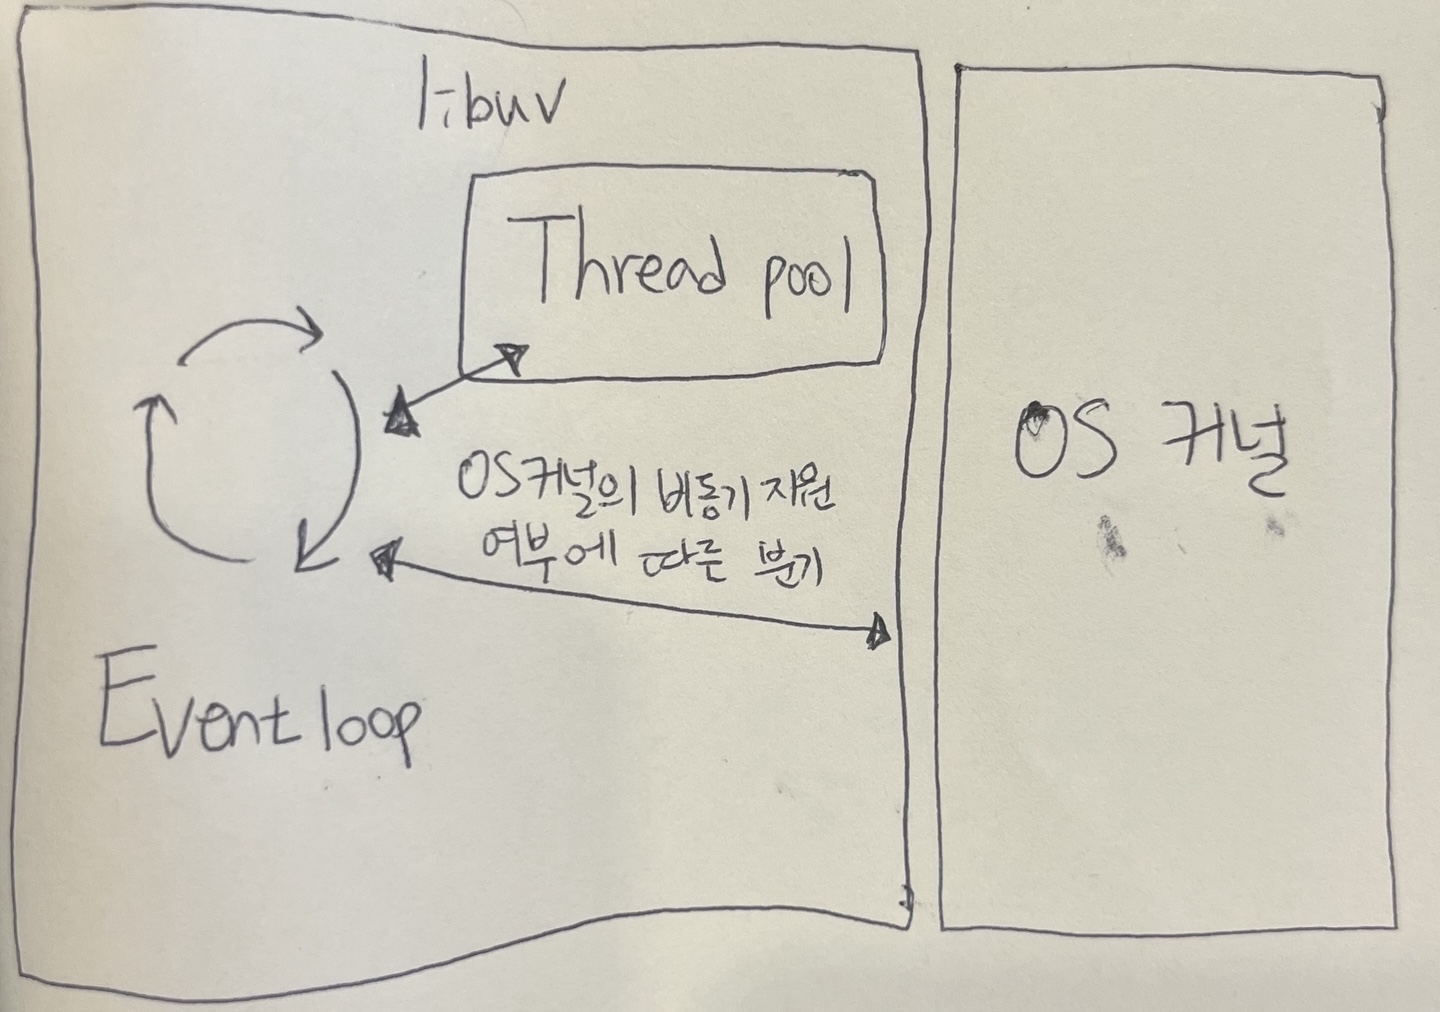 libuv
Thread pool
OS커널의 비동기 지원
여부에 따른 분기
OS 커널
Event loop